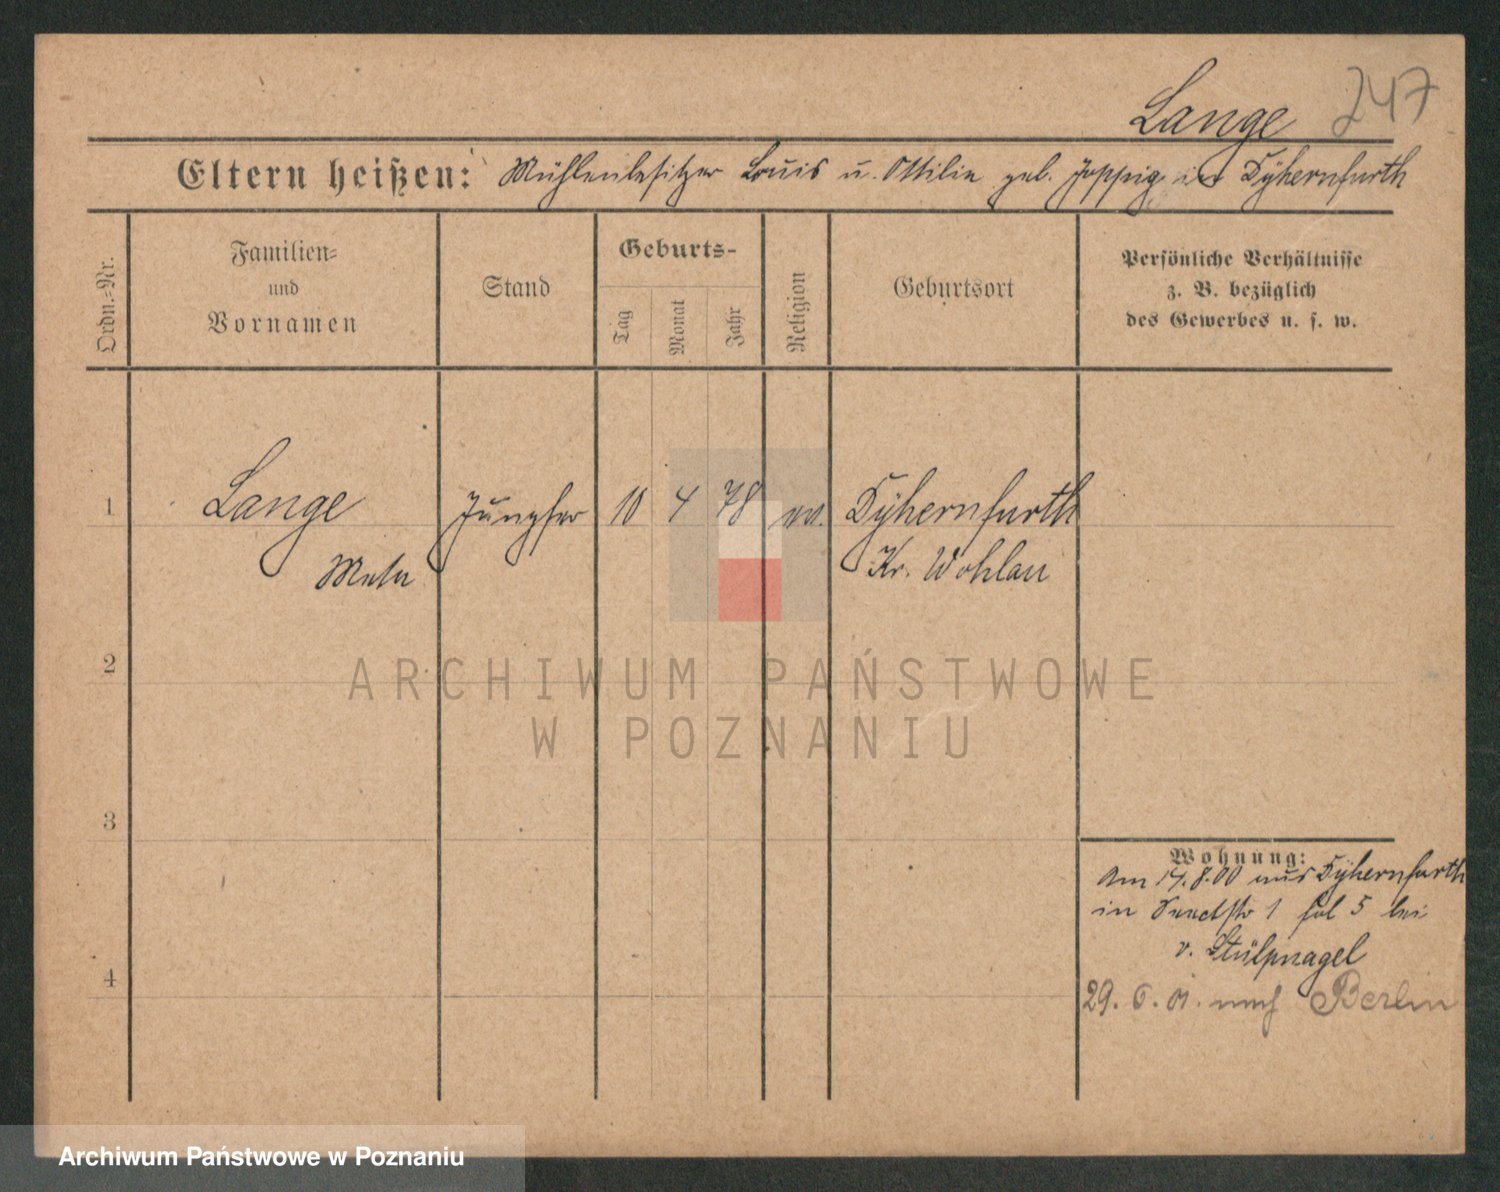 Lange 247
Eltern heißen: Mühlenbesitzer Louis u. Ottilie geb. Joppig in Dyhernfurth
Ordn.-Nr.
Familien-
und
Vornamen
Stand
Geburts-
Tag
Monat
Jahr
Religion
Geburtsort
Persönliche Verhältnisse
z. B. bezüglich
des Gewerbes u. s. w.
1 Lange Jungfer 10 4 78 ev. Dyhernfurth
Meta Kr. Wohlau
2
ARCHIWUM PAŃSTWOWE
W POZNANIU
3
Wohnung:
Am 14.8.00 aus Dyhernfurth
in 1 bei
v. Stülpnagel
4
29. 6. 01. nach Berlin
Archiwum Państwowe w Poznaniu